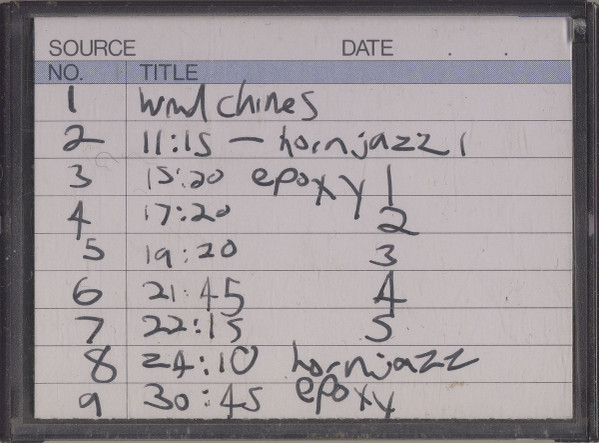 SOURCE DATE . .
NO. TITLE
1 wind chimes
2 11:15 — hornjazz 1
3 15:20 epoxy 1
4 17:20 2
5 19:20 3
6 21:45 4
7 22:15 5
8 24:10 hornjazz
9 30:45 epoxy